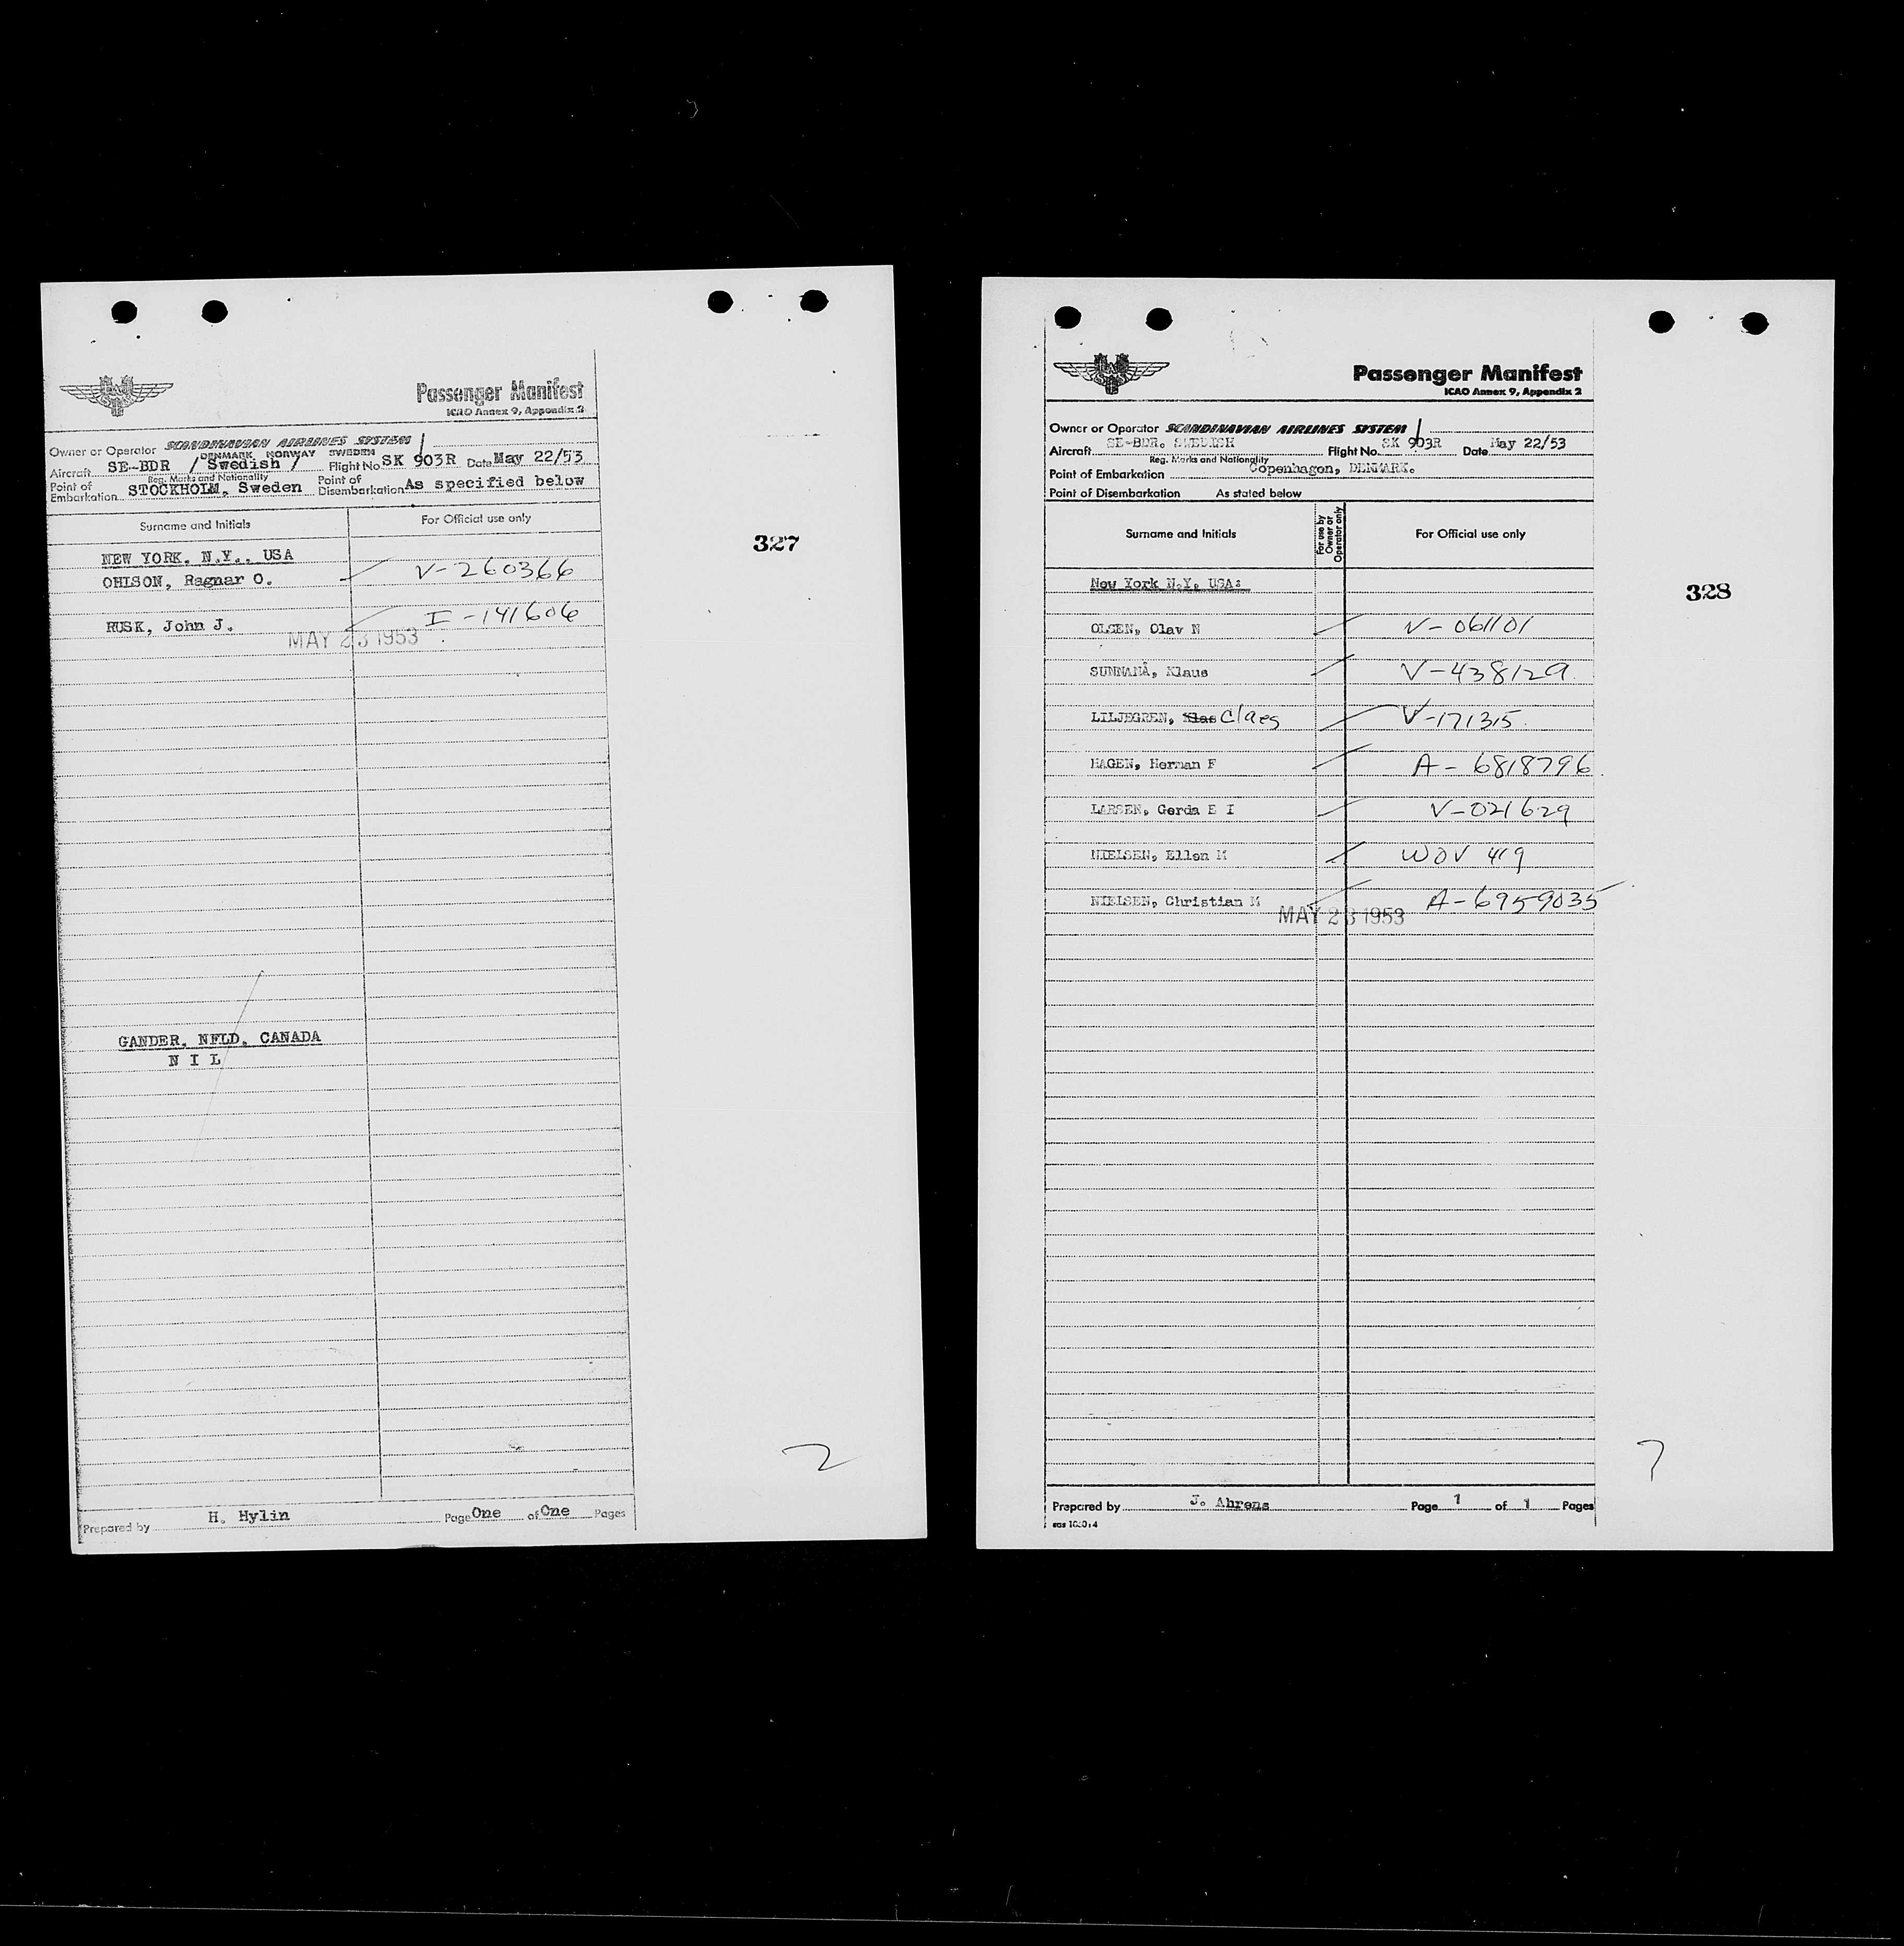 Passenger Manifest
ICAO Annex 9, Appendix 2
Owner or Operator SCANDINAVIAN AIRLINES SYSTEM
DENMARK NORWAY SWEDEN
Aircraft SE-BDR / Swedish / Flight No SK 903R Date May 22/53
Reg. Marks and Nationality
Point of Embarkation STOCKHOLM, Sweden Point of Disembarkation As specified below
Surname and Initials For Official use only
NEW YORK, N.Y., USA
OHLSON, Ragnar O. V-260366
RUSK, John J. I-141606
MAY 23 1953
GANDER, NFLD, CANADA
N I L
Prepared by H. Hylin Page One of One Pages
327
2
Passenger Manifest
ICAO Annex 9, Appendix 2
Owner or Operator SCANDINAVIAN AIRLINES SYSTEM
Aircraft SE-BDR. SWEDISH Flight No. SK 903R Date May 22/53
Reg. Marks and Nationality
Point of Embarkation Copenhagen, DENMARK.
Point of Disembarkation As stated below
Surname and Initials For use by Owner or Operator only For Official use only
New York N.Y. USA:
OLSEN, Olav N V-061101
SUNNANÅ, Klaus V-438129
LILJEGREN, Claes V-171315
HAGEN, Herman F A-6818796
LARSEN, Gerda E I V-021629
NIELSEN, Ellen M WOV 419
NIELSEN, Christian M A-6959035
MAY 23 1953
Prepared by J. Ahrens Page 1 of 1 Pages
328
7